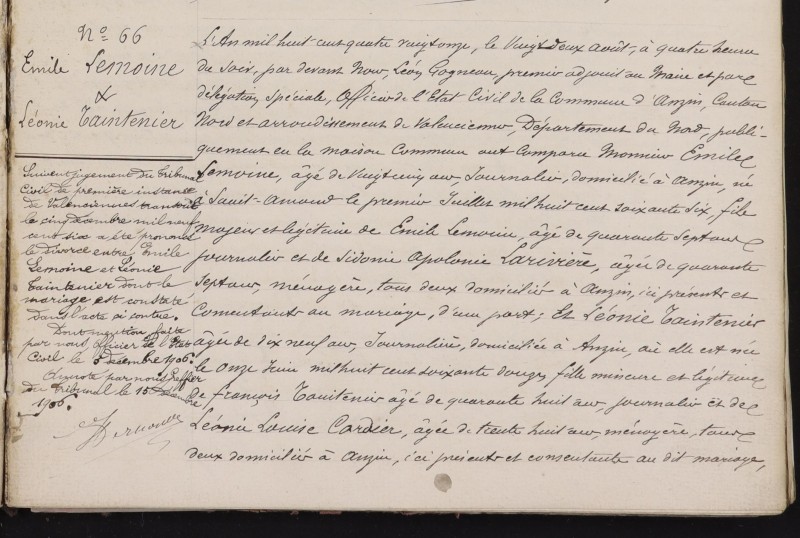 N° 66
Emile Lemoine
&
Léonie Taintenier
Suivant jugement du tribunal
Civil de première instance
de Valenciennes transcrit
le cinq décembre mil neuf
cent six a été prononcé
le divorce entre Emile
Lemoine et Léonie
Taintenier dont le
mariage est constaté
dans l'acte ci contre.
Dont mention faite
par nous, officier de l'Etat
Civil le 5 décembre 1906.
par nous Greffier
du Tribunal le 15 Décembre
1906.
L'An mil huit cent quatre vingt onze, le Vingt deux août, à quatre heures
du soir, par devant Nous, Léon Gogneau, premier adjoint au Maire et par
délégation spéciale, Officier de l'Etat Civil de la Commune d'Anzin, Canton
Nord et arrondissement de Valenciennes, Département du Nord, publi-
quement en la maison Commune ont comparu Monsieur Emile
Lemoine, âgé de Vingt cinq ans, Journalier, domicilié à Anzin, né
à Saint-Amand le premier Juillet mil huit cent soixante six, fils
majeur et légitime de Emile Lemoine, âgé de quarante sept ans
journalier et de Sidonie Apolonie Larivière, âgée de quarante
sept ans, ménagère, tous deux domiciliés à Anzin, ici présents et
Consentants au mariage, d'une part; Et Léonie Taintenier
âgée de dix neuf ans, Journalière, domiciliée à Anzin, où elle est née
le onze Juin mil huit cent soixante douze, fille mineure et légitime
de François Taintenier âgé de quarante huit ans, journalier et de
Léonie Louise Cordier, âgée de trente huit ans, ménagère, tous
deux domiciliés à Anzin, ici présents et consentants au dit mariage,